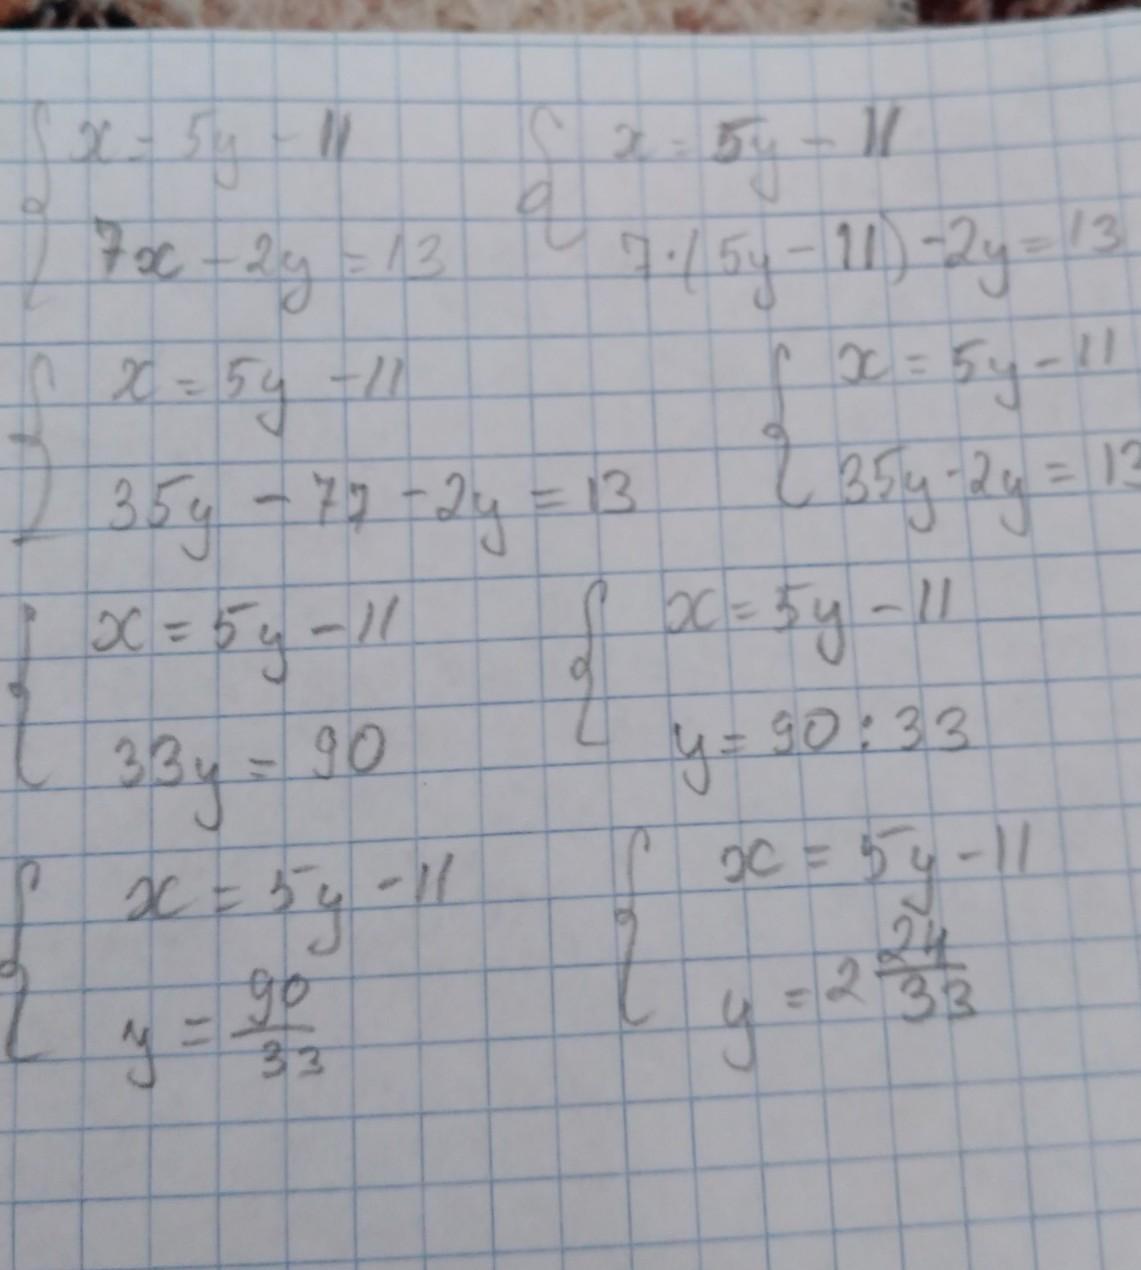 x = 5y - 11
7x - 2y = 13
x = 5y - 11
7·(5y - 11) - 2y = 13
x = 5y - 11
35y - 77 - 2y = 13
x = 5y - 11
35y - 2y = 13
x = 5y - 11
33y = 90
x = 5y - 11
y = 90 : 33
x = 5y - 11
y = 90/33
x = 5y - 11
y = 2 24/33